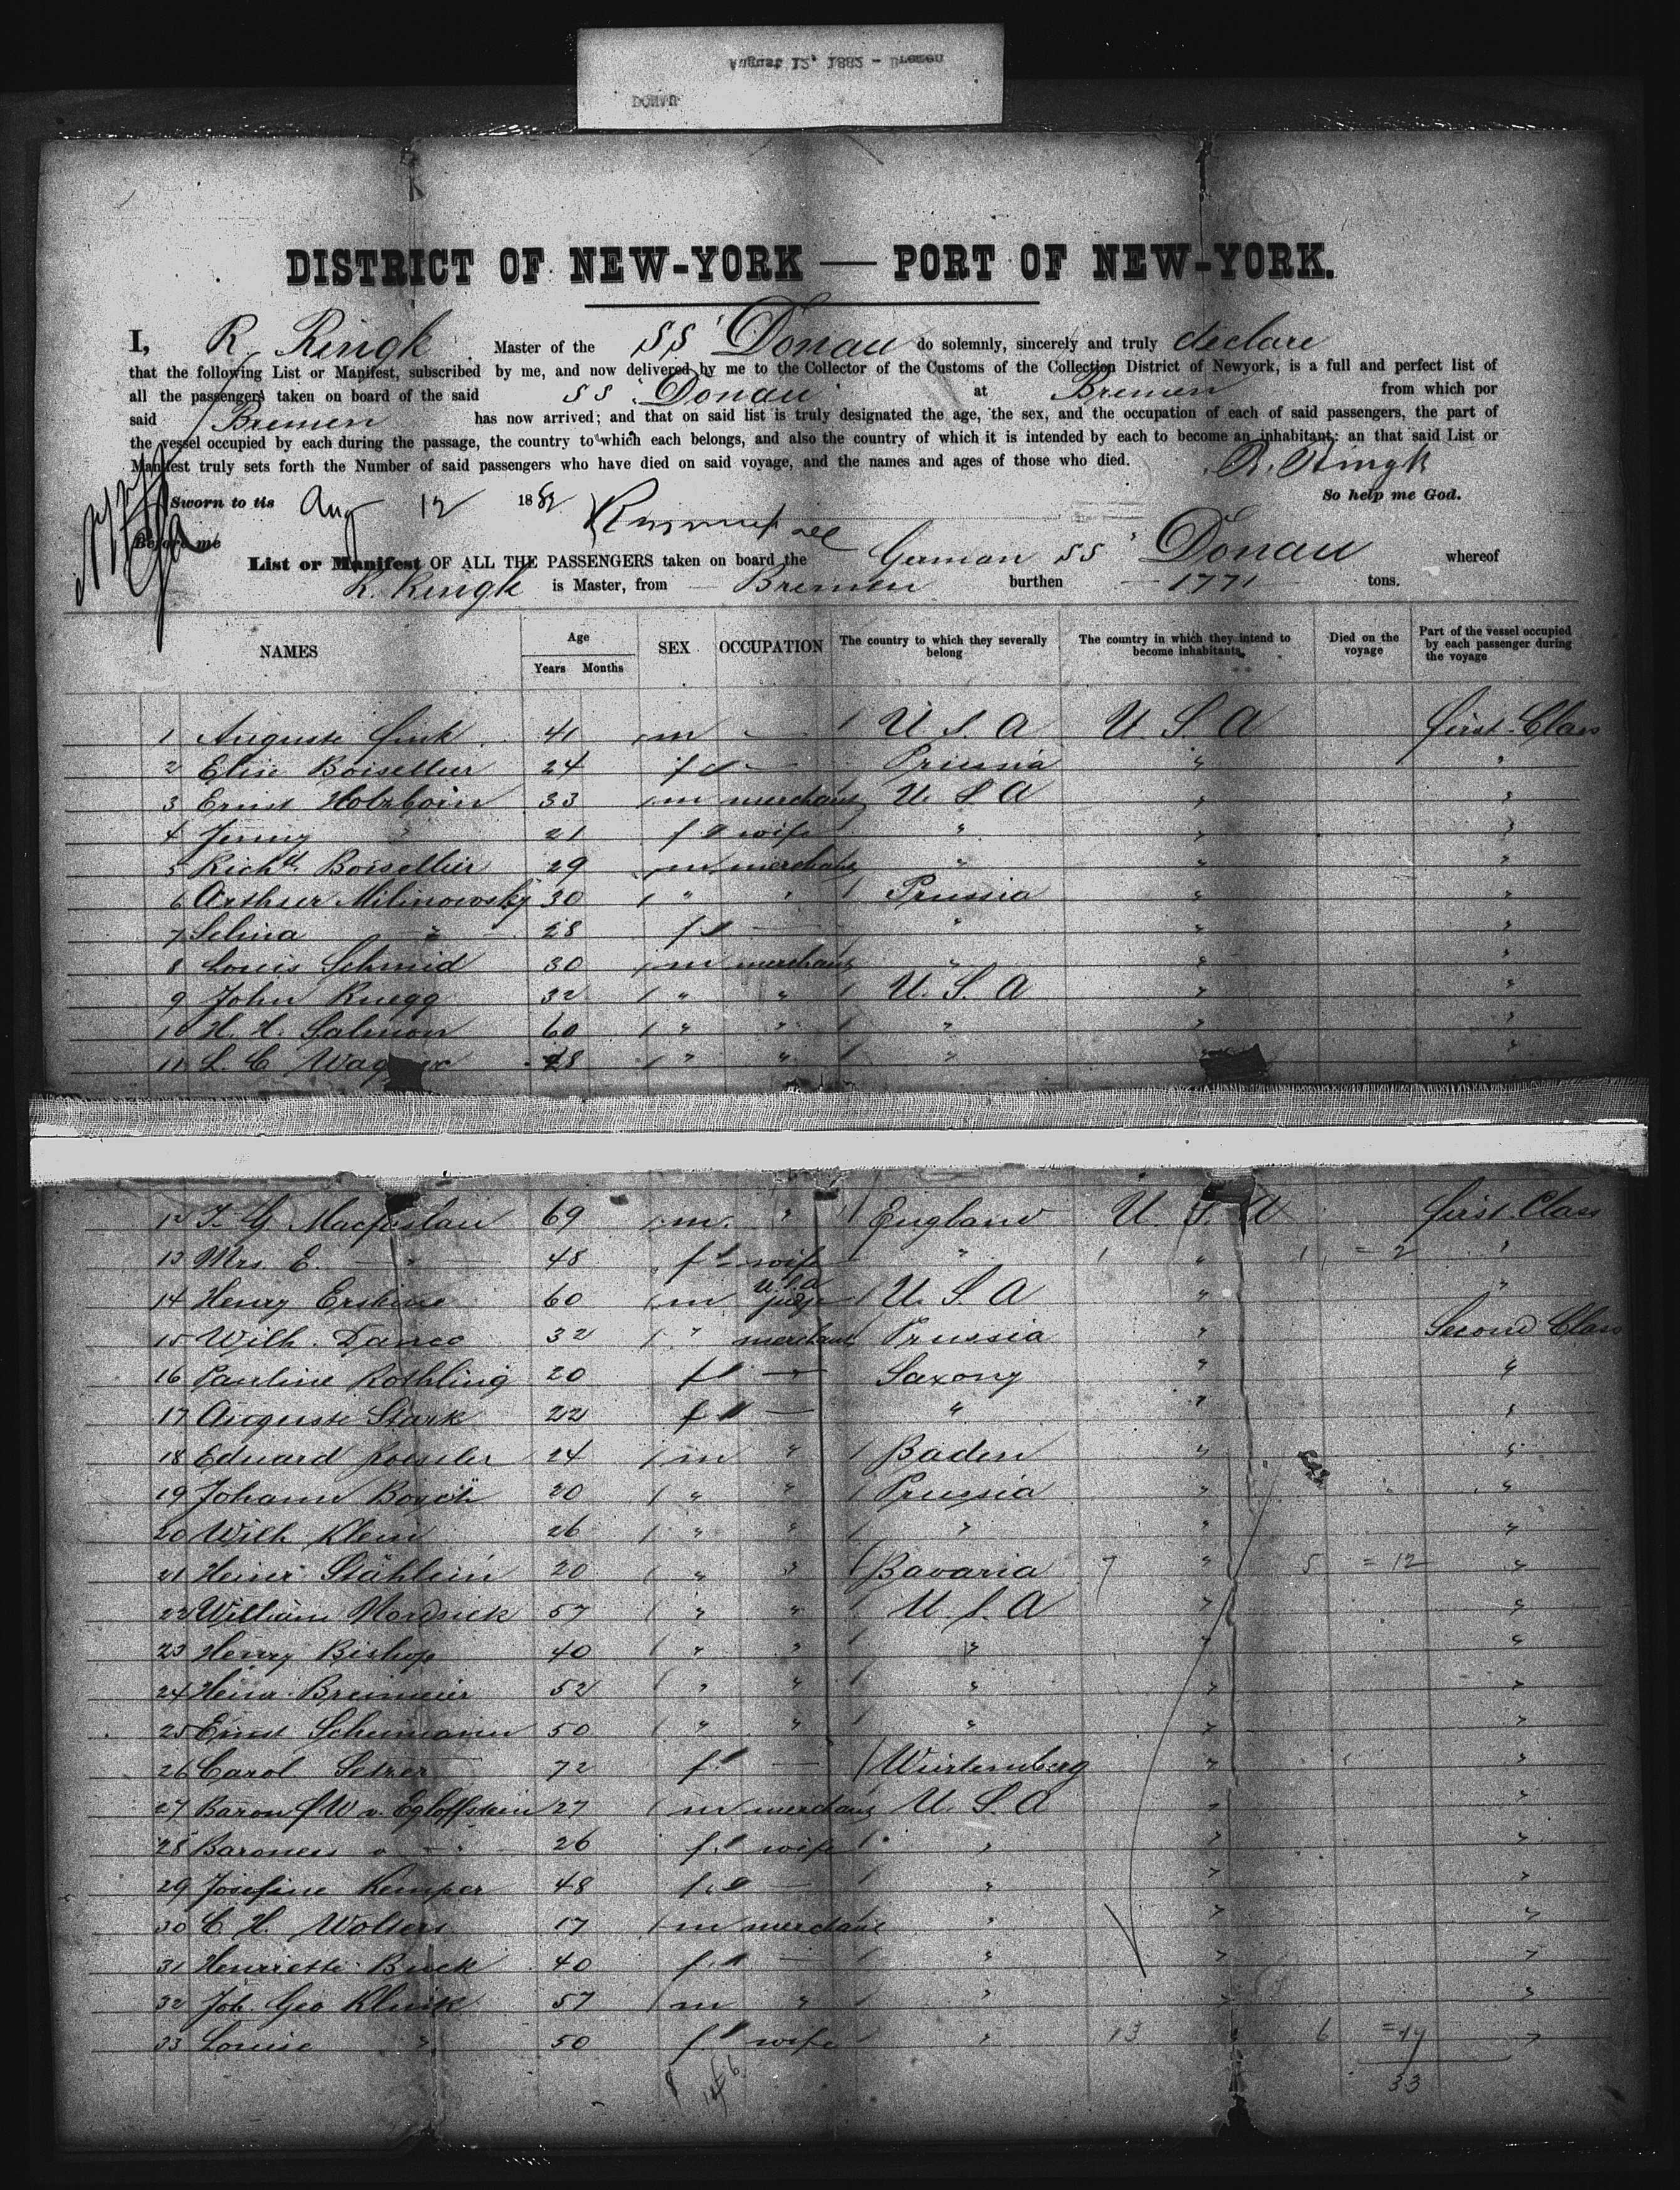 August 12, 1882 - Bremen
DONAU
DISTRICT OF NEW-YORK — PORT OF NEW-YORK.
I, R. Ringk Master of the SS Donau do solemnly, sincerely and truly declare
that the following List or Manifest, subscribed by me, and now delivered by me to the Collector of the Customs of the Collection District of Newyork, is a full and perfect list of
all the passengers taken on board of the said SS Donau at Bremen from which por
said Bremen has now arrived; and that on said list is truly designated the age, the sex, and the occupation of each of said passengers, the part of
the vessel occupied by each during the passage, the country to which each belongs, and also the country of which it is intended by each to become an inhabitant: an that said List or
Manifest truly sets forth the Number of said passengers who have died on said voyage, and the names and ages of those who died. R. Ringk
Sworn to tis Aug 12 1882 So help me God.
Before me
List or Manifest OF ALL THE PASSENGERS taken on board the German SS Donau whereof
R. Ringk is Master, from Bremen burthen 1771 tons.
NAMES Age Years Months SEX OCCUPATION The country to which they severally belong The country in which they intend to become inhabitants, Died on the voyage Part of the vessel occupied by each passenger during the voyage
1 Auguste Funk 41 m — U.S.A U.S.A first Class
2 Elise Boisellier 24 f — Prussia " "
3 Ernst Holzborn 33 m merchant U.S.A " "
4 Jenny " 21 f wife " " "
5 Richd Boisellier 29 m merchant " " "
6 Arthur Milinowsky 30 " " Prussia " "
7 Selina " 28 f — " " "
8 Louis Schmid 30 m merchant " " "
9 John Ruegg 32 " " U.S.A " "
10 H. H. Salmon 60 " " " " "
11 L. C. Wagner 48 " " " " "
12 T. G. Macfarlan 69 m " England U.S.A first Class
13 Mrs. E. " 48 f wife " " 1 = 2 "
14 Henry Erskine 60 m U.S.A judge U.S.A " "
15 Wilh. Danco 32 " merchant Prussia " Second Class
16 Pauline Rothling 20 f — Saxony " "
17 Auguste Stark 22 f — " " "
18 Eduard Roessler 24 m " Baden " "
19 Johann Bosch 20 " " Prussia " "
20 Wilh. Klein 26 " " " " "
21 Heinr Stählein 20 " " Bavaria 7 " 5 = 12 "
22 William Nordsiek 57 " " U.S.A " "
23 Henry Bishop 40 " " " " "
24 Heinr. Breimeier 52 " " " " "
25 Ernst Schumann 50 " " " " "
26 Carol. Setzer 72 f — Würtemberg " "
27 Baron f W v. Egloffstein 27 m merchant U.S.A " "
28 Baroness v " 26 f wife " " "
29 Josefine Kemper 48 f — " " "
30 C. H. Wolters 17 m merchant " " "
31 Henriette Buck 40 f — " " "
32 Joh. Geo Klink 57 m " " " "
33 Louise " 50 f wife " 13 " 6 = 19 "
33